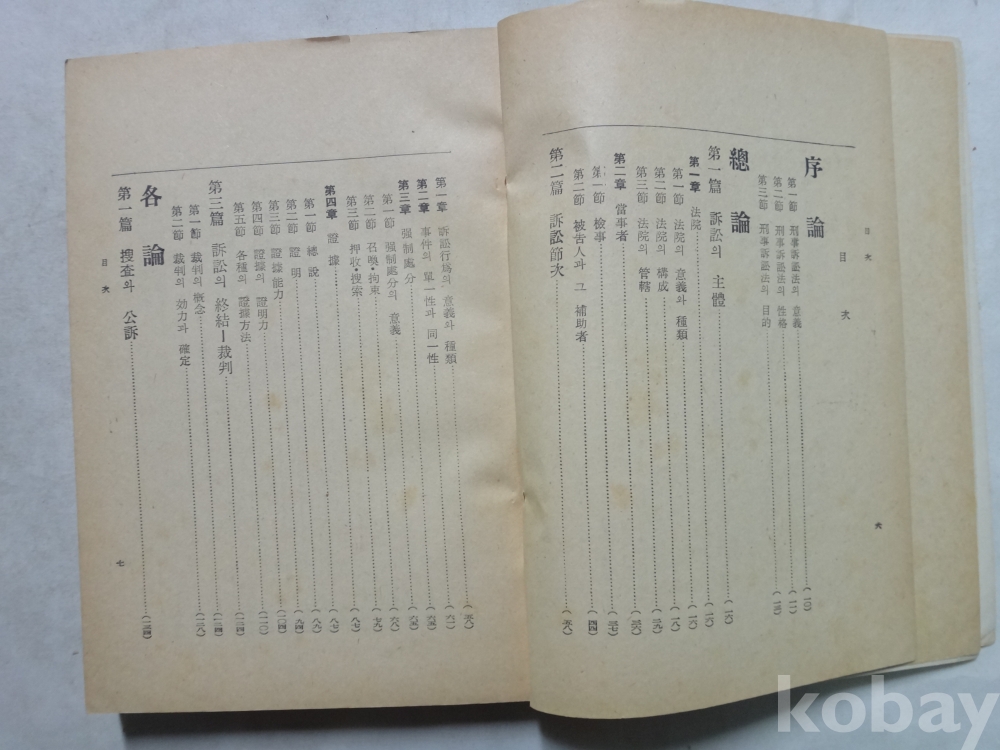 目次
目次
序論
第一節 刑事訴訟法의 意義
第二節 刑事訴訟法의 性格
第三節 刑事訴訟法의 目的
總論
第一篇 訴訟의 主體
第一章 法院
第一節 法院의 意義와 種類
第二節 法院의 構成
第三節 法院의 管轄
第二章 當事者
第一節 檢事
第二節 被告人과 그 補助者
第二篇 訴訟節次
六
第一章 訴訟行爲의 意義와 種類
第二章 事件의 單一性과 同一性
第三章 强制處分
第一節 强制處分의 意義
第二節 召喚・拘束
第三節 押收・搜索
第四章 證據
第一節 總說
第二節 證明
第三節 證據能力
第四節 證據의 證明力
第五節 各種의 證據方法
第三篇 訴訟의 終結ー裁判
第一節 裁判의 槪念
第二節 裁判의 効力과 確定
各論
第一篇 搜査와 公訴
目次
七
kobay